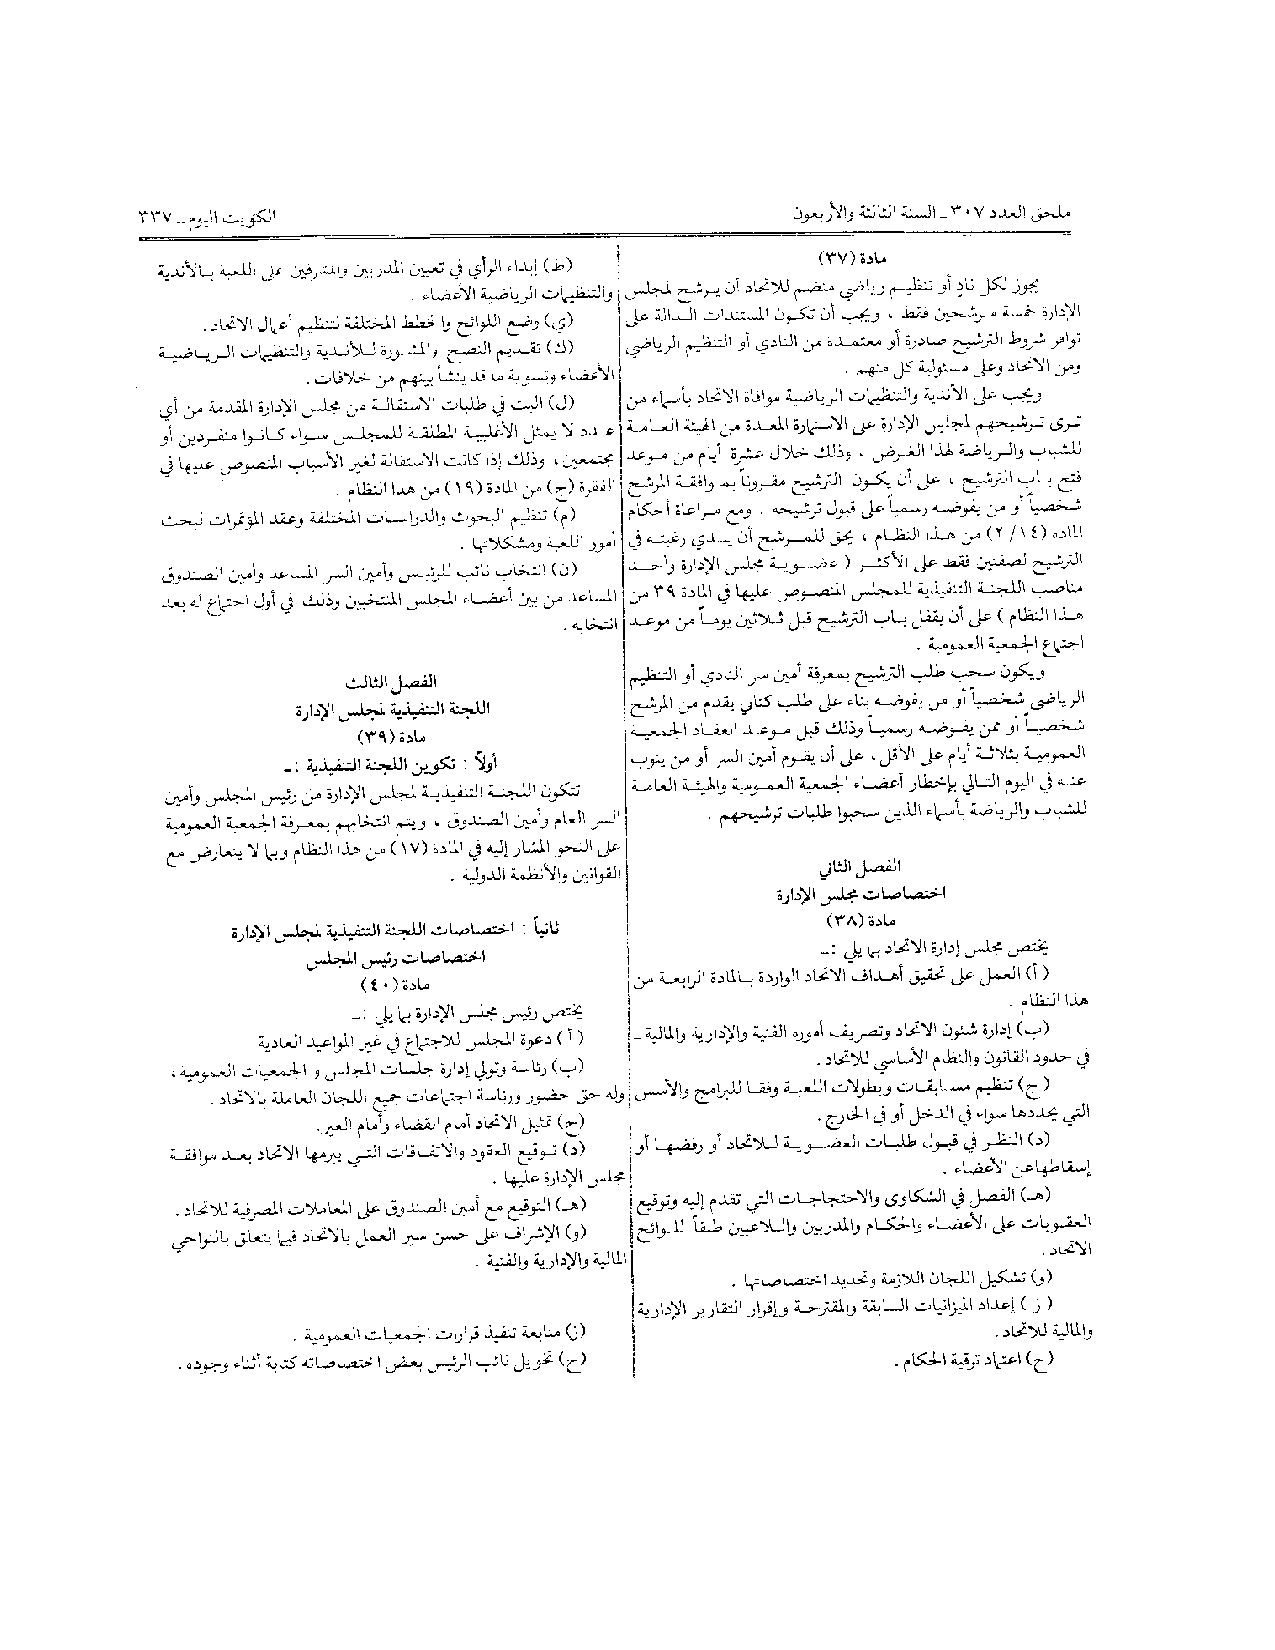 ملحق العدد ٣٠٧ ـ السنة الثالثة والأربعون
الكويت اليوم ـ ٣٣٧
مادة (٣٧)
يجوز لكل ناد أو تنظيم رياضي منضم للاتحاد أن يرشح لمجلس
الإدارة خمسة مرشحين فقط ، ويجب أن تكون المستندات الدالة على
توافر شروط الترشيح صادرة أو معتمدة من النادي أو التنظيم الرياضي
ومن الاتحاد وعلى مسئولية كل منهم .
ويجب على الأندية والتنظيمات الرياضية موافاة الاتحاد بأسماء من
ترى ترشيحهم لمجلس الإدارة على الاستمارة المعدة من الهيئة العامة
للشباب والرياضة لهذا الغرض ، وذلك خلال عشرة أيام من موعد
فتح باب الترشيح ، على أن يكون الترشيح مقروناً بموافقة المرشح
شخصياً أو من يفوضه رسمياً على قبول ترشيحه . ومع مراعاة أحكام
المادة (٢/١٤) من هذا النظام ، يحق للمرشح أن يبدي رغبته في
الترشيح لصفتين فقط على الأكثر ( عضوية مجلس الإدارة وأحد
مناصب اللجنة التنفيذية للمجلس المنصوص عليها في المادة ٣٩ من
هذا النظام ) على أن يقفل باب الترشيح قبل ثلاثين يوماً من موعد
اجتماع الجمعية العمومية .
ويكون سحب طلب الترشيح بمعرفة أمين سر النادي أو التنظيم
الرياضي شخصياً أو من يفوضه بناء على طلب كتابي يقدم من المرشح
شخصياً أو ممن يفوضه رسمياً وذلك قبل موعد انعقاد الجمعية
العمومية بثلاثة أيام على الأقل ، على أن يقوم أمين السر أو من ينوب
عنه في اليوم التالي بإخطار أعضاء الجمعية العمومية والهيئة العامة
للشباب والرياضة بأسماء الذين سحبوا طلبات ترشيحهم .
الفصل الثاني
اختصاصات مجلس الإدارة
مادة (٣٨)
يختص مجلس إدارة الاتحاد بما يلي :ـ
(أ) العمل على تحقيق أهداف الاتحاد الواردة بالمادة الرابعة من
هذا النظام .
(ب) إدارة شئون الاتحاد وتصريف أموره الفنية والإدارية والمالية ـ
في حدود القانون والنظام الأساسي للاتحاد .
(ج) تنظيم مسابقات وبطولات اللعبة وفقا للبرامج والأسس
التي يحددها سواء في الداخل أو في الخارج .
(د) النظر في قبول طلبات العضوية للاتحاد أو رفضها أو
إسقاطها عن الأعضاء .
(هـ) الفصل في الشكاوى والاحتجاجات التي تقدم إليه وتوقيع
العقوبات على الأعضاء والحكام والمدربين واللاعبين طبقاً للوائح
الاتحاد .
(و) تشكيل اللجان اللازمة وتحديد اختصاصاتها .
(ز) إعداد الميزانيات السابقة والمقترحة وإقرار التقارير الإدارية
والمالية للاتحاد .
(ح) اعتماد ترقية الحكام .
(ط) إبداء الرأي في تعيين المدربين والمشرفين على اللعبة بالأندية
والتنظيمات الرياضية الأعضاء .
(ي) وضع اللوائح والخطط المختلفة لتنظيم أعمال الاتحاد .
(ك) تقديم النصح والمشورة للأندية والتنظيمات الرياضية
الأعضاء وتسوية ما قد ينشأ بينهم من خلافات .
(ل) البت في طلبات الاستقالة من مجلس الإدارة المقدمة من أي
عدد لا يمثل الأغلبية المطلقة للمجلس سواء كانوا منفردين أو
مجتمعين ، وذلك إذا كانت الاستقالة لغير الأسباب المنصوص عليها في
الفقرة (ج) من المادة (١٩) من هذا النظام .
(م) تنظيم البحوث والدراسات المختلفة وعقد المؤتمرات لبحث
أمور اللعبة ومشكلاتها .
(ن) انتخاب نائب للرئيس وأمين السر المساعد وأمين الصندوق
المساعد من بين أعضاء المجلس المنتخبين وذلك في أول اجتماع له بعد
انتخابه .
الفصل الثالث
اللجنة التنفيذية لمجلس الإدارة
مادة (٣٩)
أولاً : تكوين اللجنة التنفيذية :ـ
تتكون اللجنة التنفيذية لمجلس الإدارة من رئيس المجلس وأمين
السر العام وأمين الصندوق ، ويتم انتخابهم بمعرفة الجمعية العمومية
على النحو المشار إليه في المادة (١٧) من هذا النظام وبما لا يتعارض مع
القوانين والأنظمة الدولية .
ثانياً : اختصاصات اللجنة التنفيذية لمجلس الإدارة
اختصاصات رئيس المجلس
مادة (٤٠)
يختص رئيس مجلس الإدارة بما يلي :ـ
(أ) دعوة المجلس للاجتماع في غير المواعيد العادية
(ب) رئاسة وتولي إدارة جلسات المجلس والجمعيات العمومية ،
وله حق حضور ورئاسة اجتماعات جميع اللجان العاملة بالاتحاد .
(ج) تمثيل الاتحاد أمام القضاء وأمام الغير .
(د) توقيع العقود والاتفاقات التي يبرمها الاتحاد بعد موافقة
مجلس الإدارة عليها .
(هـ) التوقيع مع أمين الصندوق على المعاملات المصرفية للاتحاد .
(و) الإشراف على حسن سير العمل بالاتحاد فيما يتعلق بالنواحي
المالية والإدارية والفنية .
(ز) متابعة تنفيذ قرارات الجمعيات العمومية .
(ح) تخويل نائب الرئيس بعض اختصاصاته كتابة أثناء وجوده .